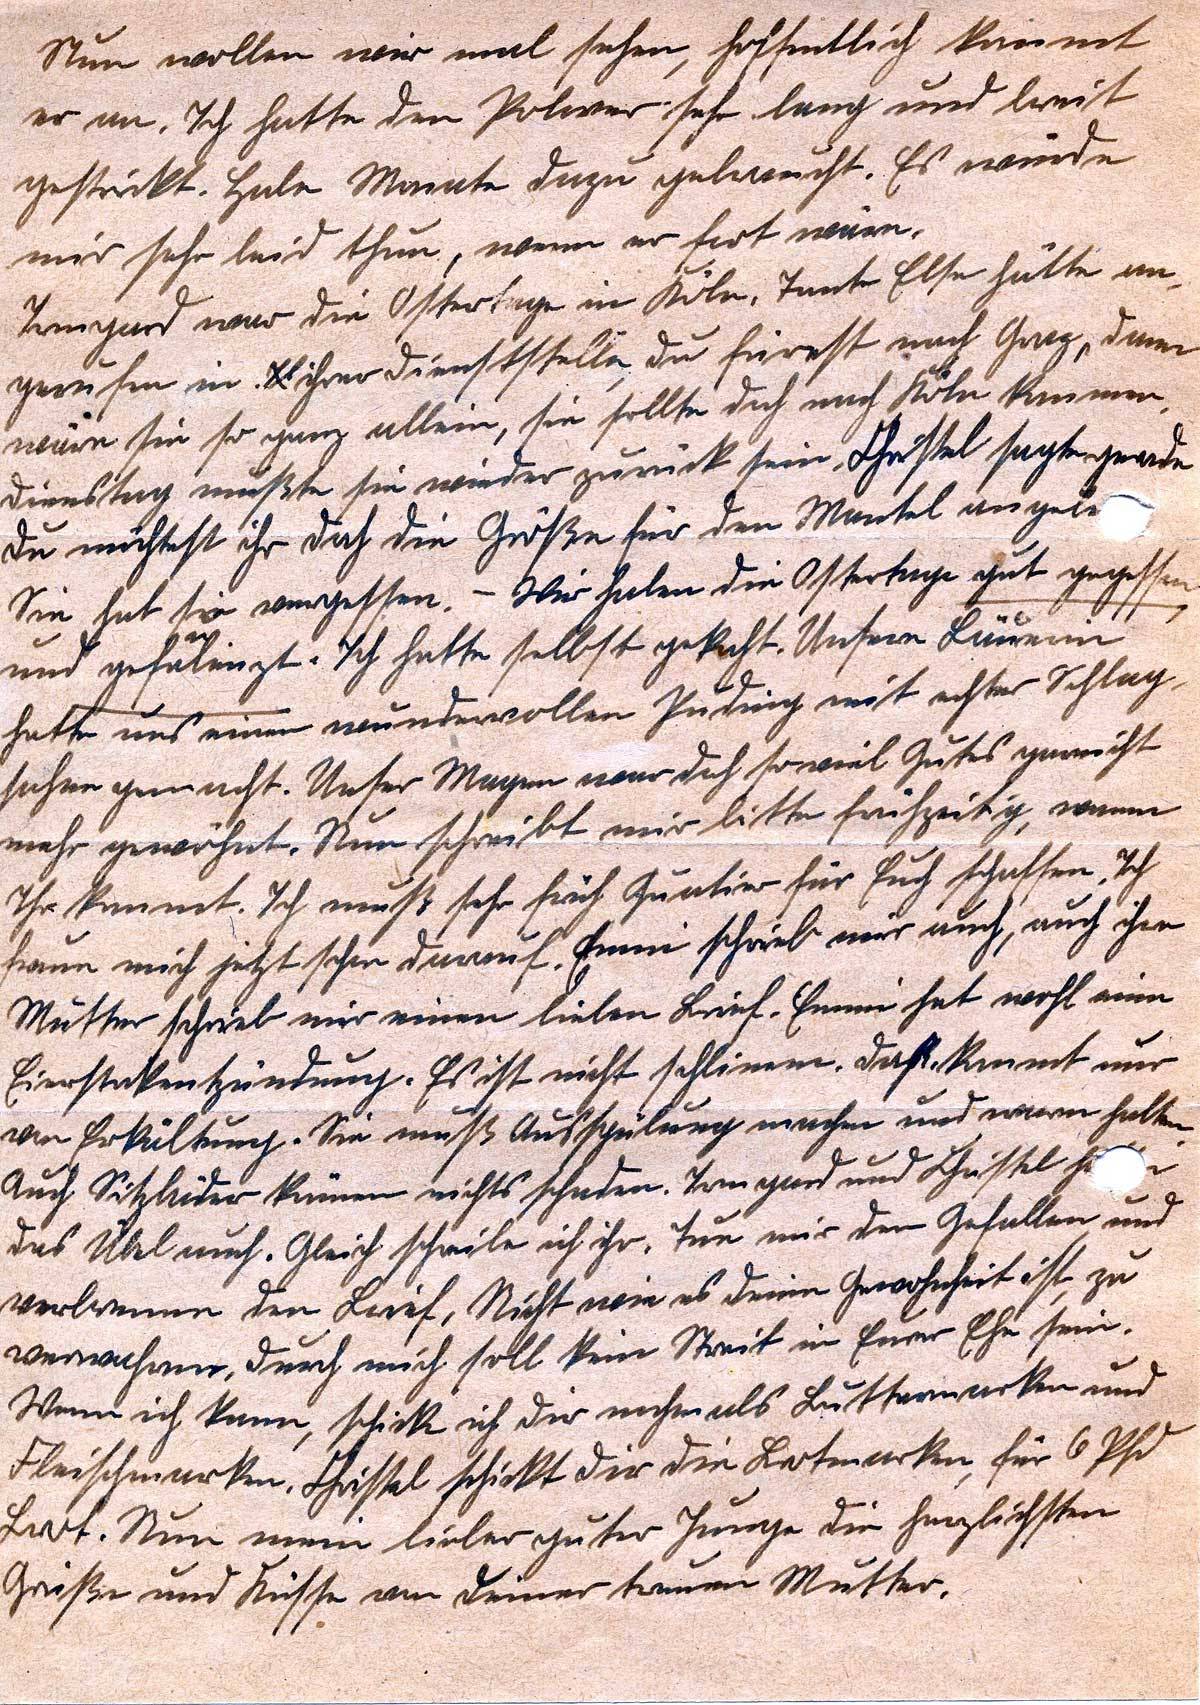 Nun wollen wir mal sehen, hoffentlich kommt
er an. Ich hatte den Polower sehr lang und breit
gestrickt. Habe Monate dazu gebraucht. Es würde
mir sehr leid thun, wenn er fort wäre.
Irmgard war die Ostertage in Köln. Tante Else hätte an-
gerufen in ihrer Dienststelle, du fürest nach Graz, dann
wäre sie so ganz allein, sie sollte doch nach Köln kommen.
Dienstag mußte sie wieder zurück sein. Christel sagte gerade
Du möchtest ihr doch die Größe für den Mantel
Sie hat sie vergessen. – Wir haben die Ostertage gut gegessen
und gefaulenzt. Ich hatte selbst gekocht. Unsere Bäuerin
hatte uns einen wundervollen Puding mit echter Schlag-
sahne gemacht. Unser Magen war doch so viel Gutes garnicht
mehr gewöhnt. Nun schreibt mir bitte frühzeitig, wann
Ihr kommt. Ich muß sehr früh Quatier für Euch schaffen. Ich
freue mich jetzt schon darauf. Emmi schrieb mir auch, auch ihre
Mutter schrieb mir einen lieben Brief. Emmi hat wohl eine
Eierstokentzündung. Es ist nicht schlimm. Das kommt nur
von Erkältung. Sie muß Ausspülung machen und warm halten.
Auch Sitzbäder können nichts schaden. Irmgard und Christel
das Übel auch. Gleich schreibe ich ihr. Tue mir den Gefallen und
verbrenne den Brief, Nicht wie es deine Gewohnheit ist, zu
verwahren. Durch mich soll kein Streit in Eurer Ehe sein.
Wenn ich kann, schicke ich dir nochmals Buttermarken und
Fleischmarken. Christel schickt dir die Brotmarken, für 6 Pfd
Brot. Nun mein lieber guter Junge die herzlichsten
Grüße und Küsse von Deiner treuen Mutter.